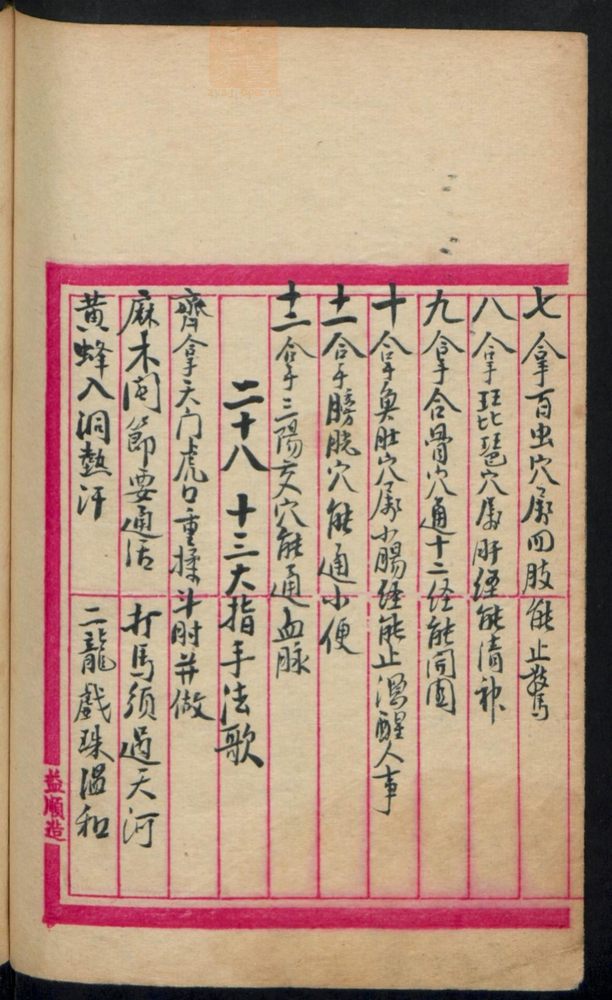 七 拿百虫穴屬四肢能止驚
八 拿琵琶穴屬肝経能清神
九 拿合骨穴通十二経能開
十 拿魚肚穴屬小腸経能止瀉醒人事
十一 拿膀胱穴能通小便
十二 拿三陽交穴能通血脉
二十八 十三大指手法歌
齊拿天门虎口重揉斗肘并做
麻木関節要通活 打馬須过天河
黃蜂入洞熱汗 二龍戲珠温和
益順造